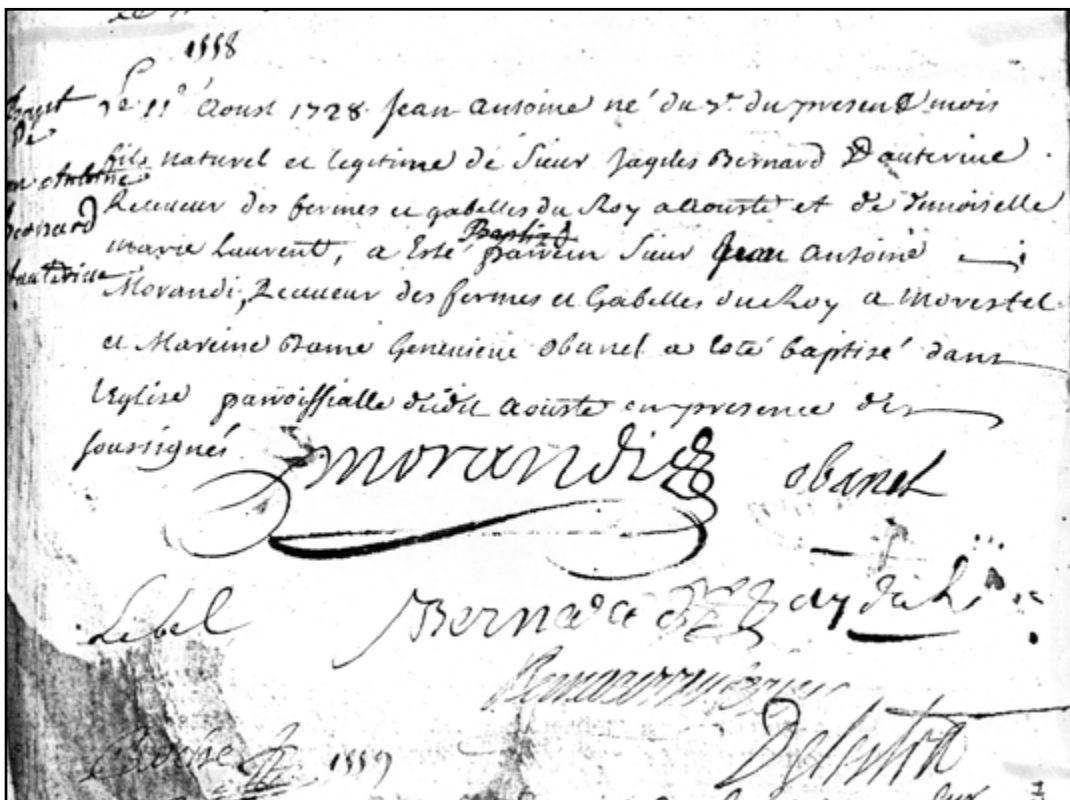 1558
Bapt
De
Antoine
bernard
dauterive
Le 11e Aoust 1728 Jean Antoine né du 7e du present mois
fils naturel et legitime de Sieur Jaques Bernard Dauterive
Receveur des fermes et gabelles du Roy a Aouste et de Demoiselle
marie Laurent, a Esté parrein Sieur Jean Antoine
Morandi, Receveur des fermes et Gabelles du Roy a Morestel
et Mareine Dame Genevieve Obanel a Eoté baptisé dans
l'Eglise parroissialle dudit Aouste en presence des
soussignés
morandi
obanel
Lebel
Bernard
1559